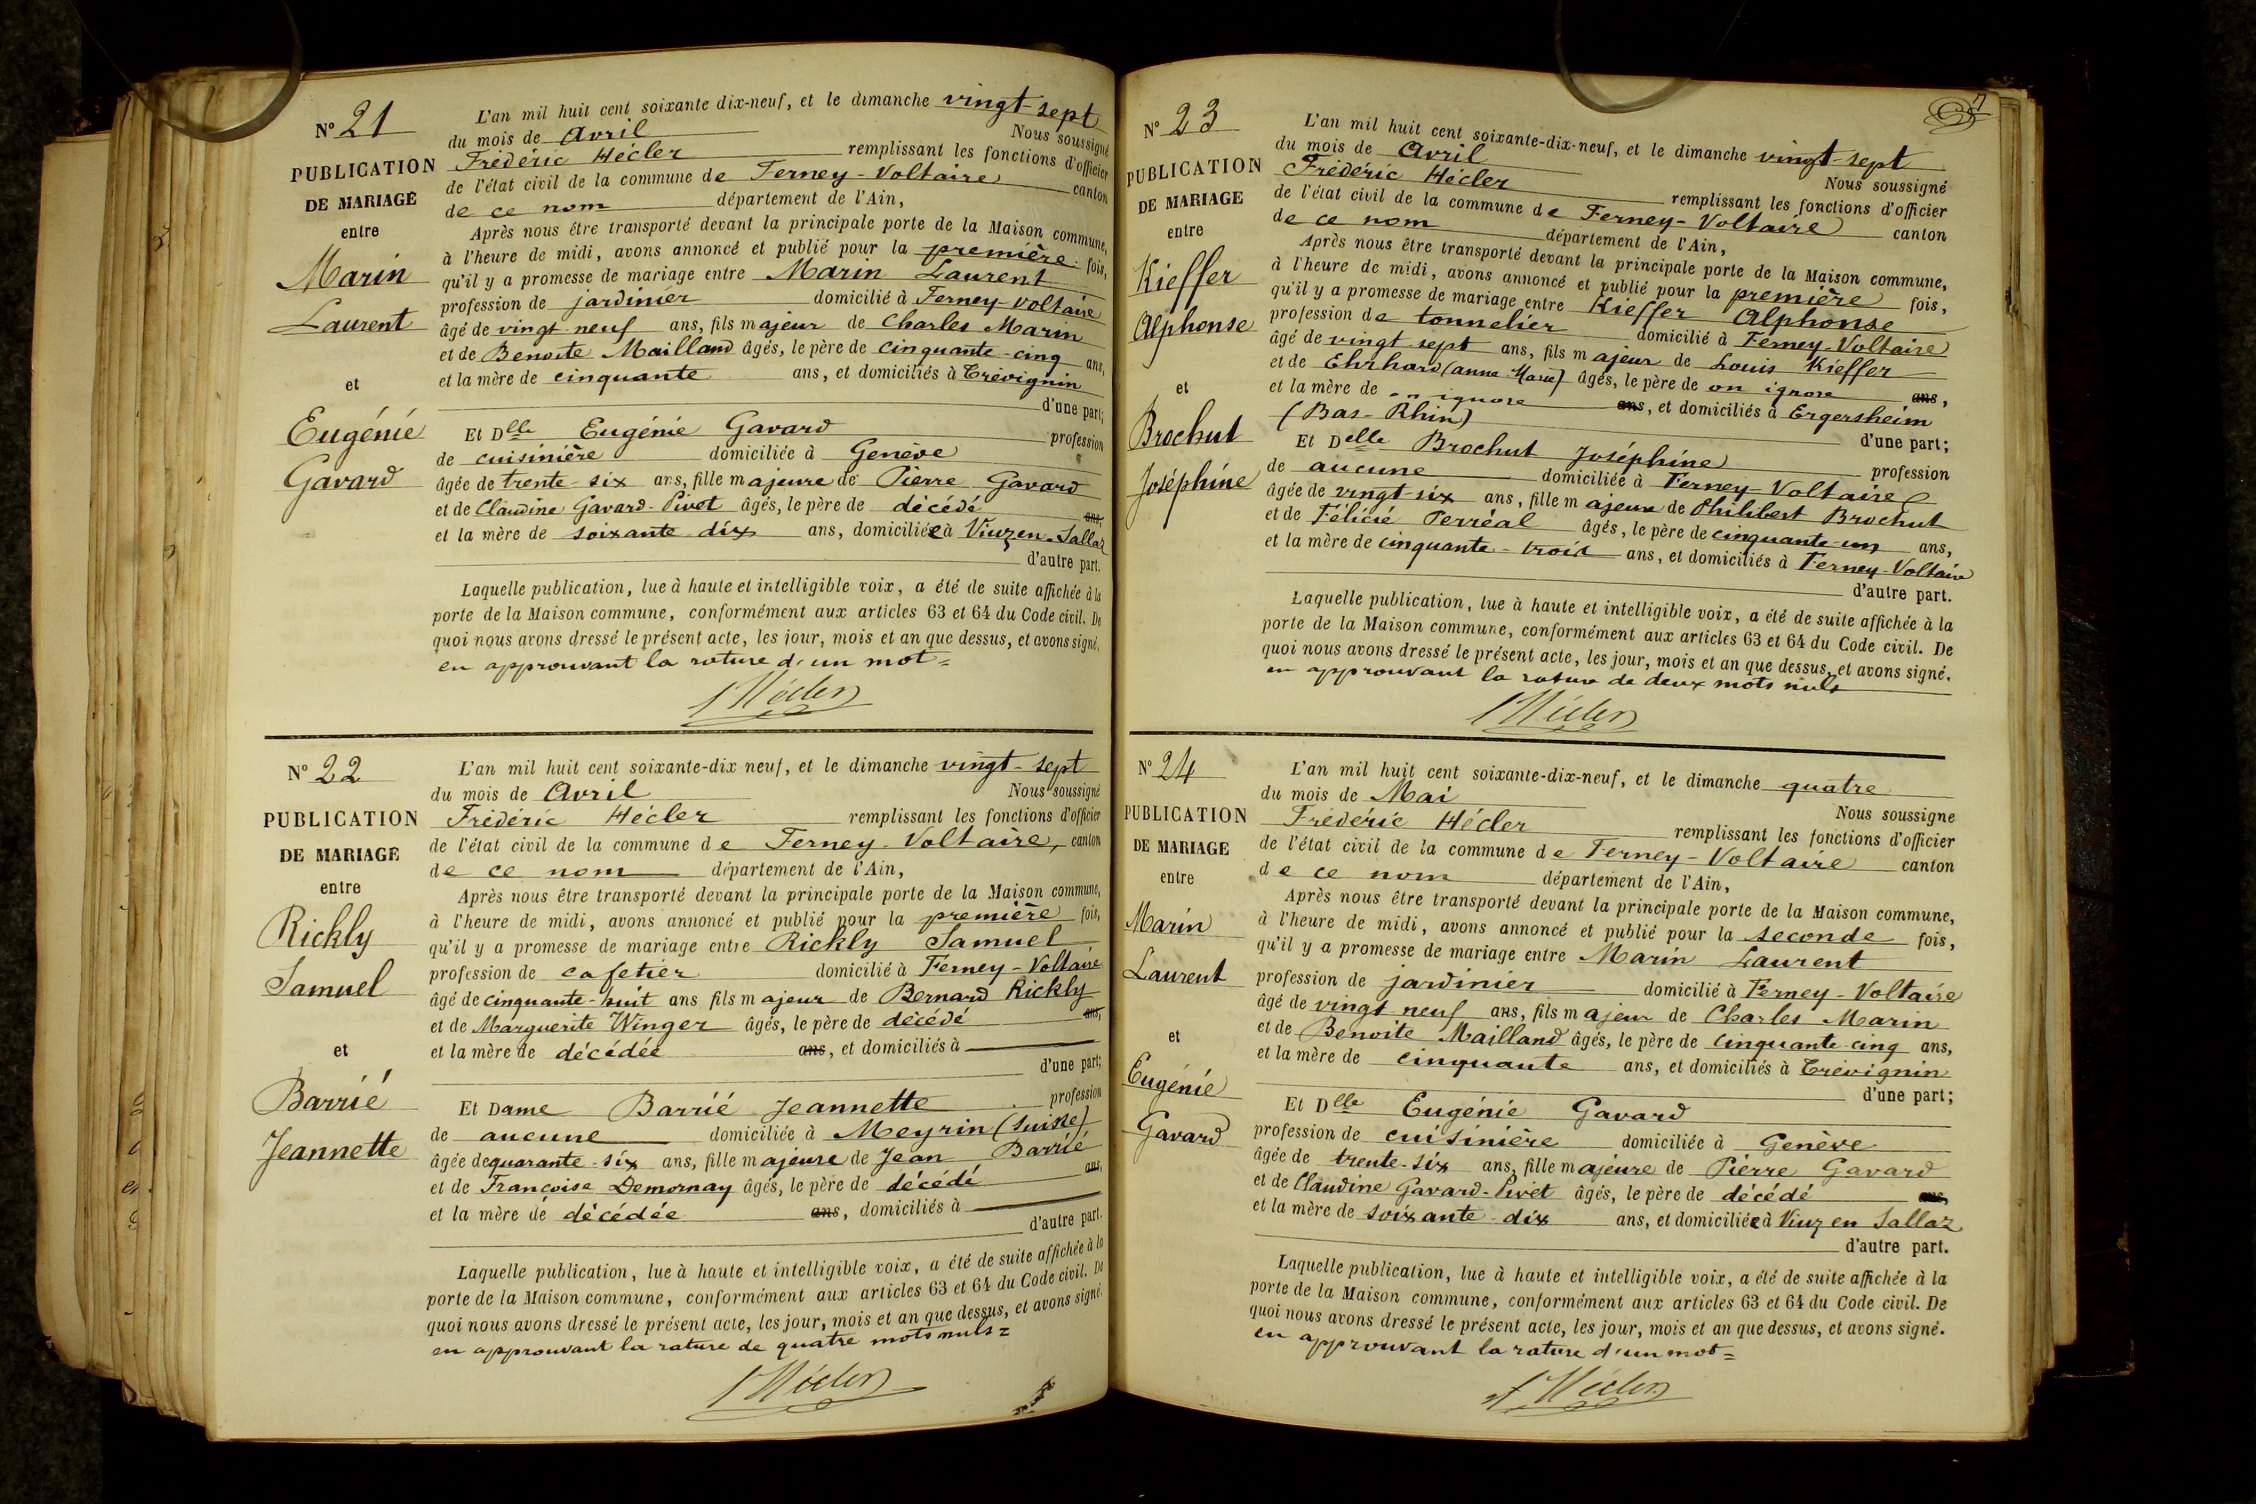 N° 21
PUBLICATION
DE MARIAGE
entre
Marin
Laurent
et
Eugénie
Gavard
L'an mil huit cent soixante dix-neuf, et le dimanche vingt-sept
du mois de Avril Nous soussigné
Frédéric Hécler remplissant les fonctions d'officier
de l'état civil de la commune de Ferney-Voltaire canton
de ce nom département de l'Ain,
Après nous être transporté devant la principale porte de la Maison commune,
à l'heure de midi, avons annoncé et publié pour la première fois,
qu'il y a promesse de mariage entre Marin Laurent
profession de jardinier domicilié à Ferney-Voltaire
âgé de vingt neuf ans, fils majeur de Charles Marin
et de Benoite Mailland âgés, le père de cinquante-cinq ans,
et la mère de cinquante ans, et domiciliés à Trévignin
d'une part;
Et Dlle Eugénie Gavard profession
de cuisinière domiciliée à Genève
âgée de trente-six ans, fille majeure de Pierre Gavard
et de Claudine Gavard-Pivet âgés, le père de décédé ans,
et la mère de soixante dix ans, domiciliée à Viuz en Sallaz
d'autre part.
Laquelle publication, lue à haute et intelligible voix, a été de suite affichée à la
porte de la Maison commune, conformément aux articles 63 et 64 du Code civil. De
quoi nous avons dressé le présent acte, les jour, mois et an que dessus, et avons signé.
en approuvant la rature d'un mot=
Hécler
N° 22
PUBLICATION
DE MARIAGE
entre
Rickly
Samuel
et
Barrié
Jeannette
L'an mil huit cent soixante-dix neuf, et le dimanche vingt-sept
du mois de Avril Nous soussigné
Frédéric Hécler remplissant les fonctions d'officier
de l'état civil de la commune de Ferney-Voltaire, canton
de ce nom département de l'Ain,
Après nous être transporté devant la principale porte de la Maison commune,
à l'heure de midi, avons annoncé et publié pour la première fois,
qu'il y a promesse de mariage entre Rickly Samuel
profession de cafetier domicilié à Ferney-Voltaire
âgé de cinquante-huit ans fils majeur de Bernard Rickly
et de Marguerite Winger âgés, le père de décédé ans,
et la mère de décédée ans, et domiciliés à
d'une part;
Et Dame Barrié Jeannette profession
de aucune domiciliée à Meyrin (Suisse)
âgée de quarante-six ans, fille majeure de Jean Barrié
et de Françoise Demornay âgés, le père de décédé ans,
et la mère de décédée ans, domiciliés à
d'autre part.
Laquelle publication, lue à haute et intelligible voix, a été de suite affichée à la
porte de la Maison commune, conformément aux articles 63 et 64 du Code civil. De
quoi nous avons dressé le présent acte, les jour, mois et an que dessus, et avons signé.
en approuvant la rature de quatre mots nuls=
Hécler
N° 23
PUBLICATION
DE MARIAGE
entre
Kieffer
Alphonse
et
Brochut
Joséphine
L'an mil huit cent soixante-dix-neuf, et le dimanche vingt-sept
du mois de Avril Nous soussigné
Frédéric Hécler remplissant les fonctions d'officier
de l'état civil de la commune de Ferney-Voltaire canton
de ce nom département de l'Ain,
Après nous être transporté devant la principale porte de la Maison commune,
à l'heure de midi, avons annoncé et publié pour la première fois,
qu'il y a promesse de mariage entre Kieffer Alphonse
profession de tonnelier domicilié à Ferney-Voltaire
âgé de vingt sept ans, fils majeur de Louis Kieffer
et de Ehrhard (anne Marie) âgés, le père de on ignore ans,
et la mère de on ignore ans, et domiciliés à Ergersheim
(Bas-Rhin) d'une part;
Et Delle Brochut Joséphine profession
de aucune domiciliée à Ferney-Voltaire
âgée de vingt-six ans, fille majeure de Philibert Brochut
et de Félicie Perréal âgés, le père de cinquante-un ans,
et la mère de cinquante-trois ans, et domiciliés à Ferney-Voltaire
d'autre part.
Laquelle publication, lue à haute et intelligible voix, a été de suite affichée à la
porte de la Maison commune, conformément aux articles 63 et 64 du Code civil. De
quoi nous avons dressé le présent acte, les jour, mois et an que dessus, et avons signé.
en approuvant la rature de deux mots nuls
Hécler
N° 24
PUBLICATION
DE MARIAGE
entre
Marin
Laurent
et
Eugénie
Gavard
L'an mil huit cent soixante-dix-neuf, et le dimanche quatre
du mois de Mai Nous soussigné
Frédéric Hécler remplissant les fonctions d'officier
de l'état civil de la commune de Ferney-Voltaire canton
de ce nom département de l'Ain,
Après nous être transporté devant la principale porte de la Maison commune,
à l'heure de midi, avons annoncé et publié pour la seconde fois,
qu'il y a promesse de mariage entre Marin Laurent
profession de jardinier domicilié à Ferney-Voltaire
âgé de vingt neuf ans, fils majeur de Charles Marin
et de Benoite Mailland âgés, le père de cinquante cinq ans,
et la mère de cinquante ans, et domiciliés à Trévignin
d'une part;
Et Dlle Eugénie Gavard
profession de cuisinière domiciliée à Genève
âgée de trente-six ans, fille majeure de Pierre Gavard
et de Claudine Gavard-Pivet âgés, le père de décédé ans,
et la mère de soixante-dix ans, et domiciliée à Viuz en Sallaz
d'autre part.
Laquelle publication, lue à haute et intelligible voix, a été de suite affichée à la
porte de la Maison commune, conformément aux articles 63 et 64 du Code civil. De
quoi nous avons dressé le présent acte, les jour, mois et an que dessus, et avons signé.
en approuvant la rature d'un mot=
Hécler